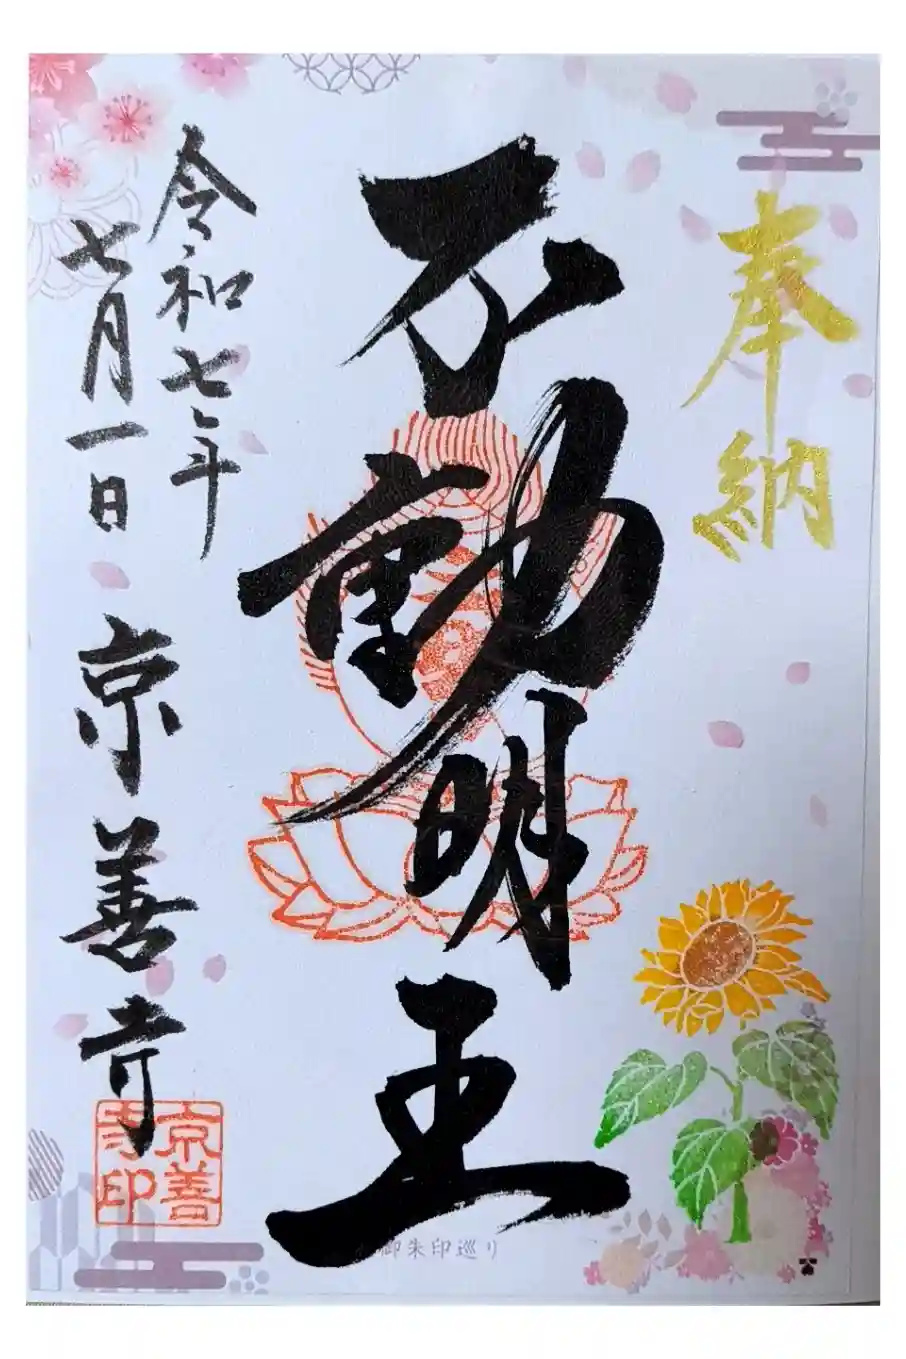 奉納
不動明王
令和七年
七月一日
京善寺
京善寺印
御朱印巡り